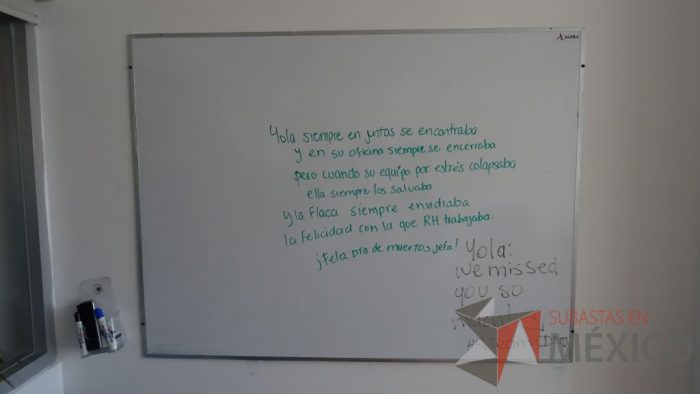 Yola siempre en juntas se encontraba
y en su oficina siempre se encerraba
pero cuando su equipo por estrés colapsaba
ella siempre los salvaba
y la Flaca siempre envidiaba
la felicidad con la que RH trabajaba.
¡Feliz día de muertos jefa!
Yola:
we missed
you so
SUBASTAS EN
MÉXICO